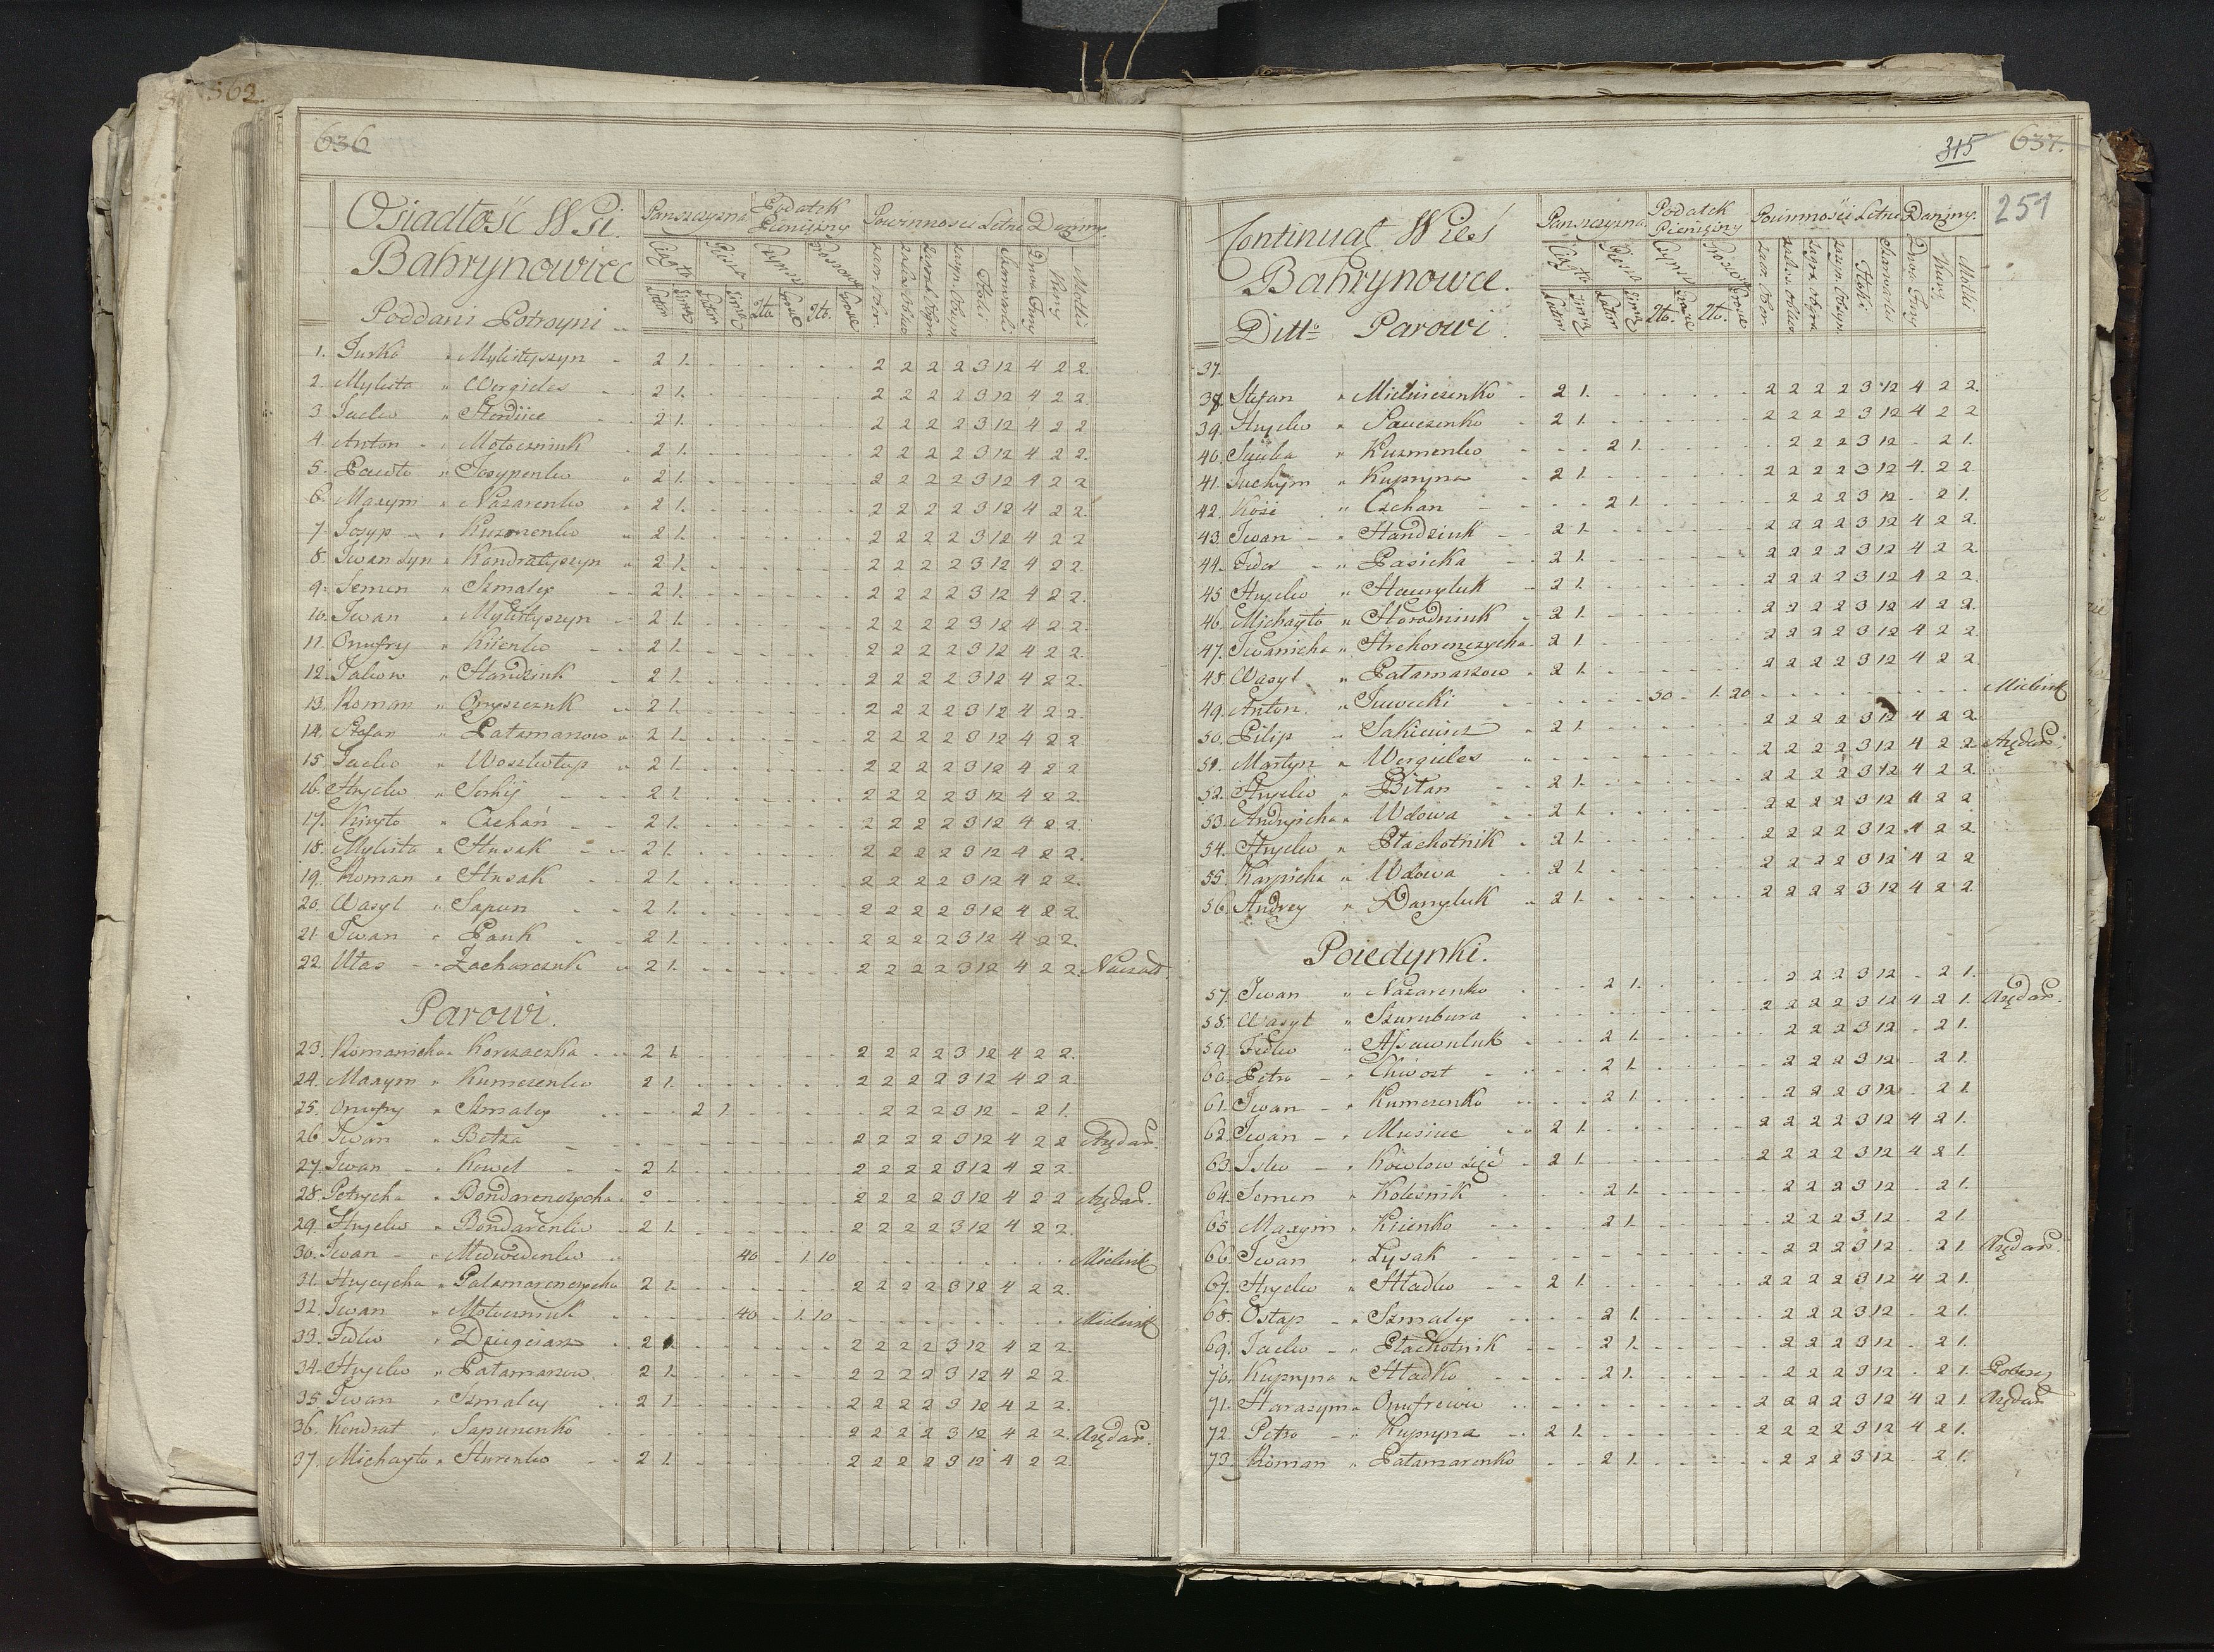 562.
636
Osiadłość Wsi
Bahrynowiec
Poddani Potroyni
Panszczyzna Podatek Pieniężny Powinnosci Letnie Daniny
1. Jurko " Mykityszyn - 2 1. 2 2 2 2 3 12 4 2 2.
2. Mykita " Wergieles - 2 1. 2 2 2 2 3 12 4 2 2
3. Jacko " 2 1. 2 2 2 2 3 12 4 2 2
4. Anton - " Mołoczniuk 2 1. 2 2 2 2 3 12 4 2 2.
5. Pawło " Josypenko " 2 1. 2 2 2 2 3 12 4 2 2
6. Maxym " Nazarenko " 2 1. 2 2 2 2 3 12 4 2 2.
7. Josyp - " Kuzmenko " 2 1. 2 2 2 2 3 12 4 2 2
8. Iwan Syn " Kondratyszyn " 2 1. 2 2 2 2 3 12 4 2 2.
9. Semen " Szmaley 2 1. 2 2 2 2 3 12 4 2 2.
10. Iwan " Mykityszyn - 2 1. 2 2 2 2 3 12 4 2 2.
11. Onufry " Kiienko - 2 1. 2 2 2 2 3 12 4 2 2.
12. Jakow " Handziuk - 2 1. 2 2 2 2 3 12 4 2 2.
13. Roman " Onyszczuk - 2 1. 2 2 2 2 3 12 4 2 2.
14. Stefan " Patamarzow " 2 1. 2 2 2 2 3 12 4 2 2
15. Jacko " Woskotup " 2 1. 2 2 2 2 3 12 4 2 2
16. Hrycko " Serhij - 2 1. 2 2 2 2 3 12 4 2 2.
17. Kiryło " Czehan - 2 1. 2 2 2 2 3 12 4 2 2.
18. Mykita " Husak - 2 1. 2 2 2 2 3 12 4 2 2.
19. Roman " Husak - 2 1. 2 2 2 2 3 12 4 2 2.
20. Wasyl " Sapun - 2 1. 2 2 2 2 3 12 4 2 2.
21. Iwan " Pauk - 2 1. 2 2 2 2 3 12 4 2 2.
22. Ułas - " Zacharczuk " 2 1. 2 2 2 2 3 12 4 2 2.
Parowi.
23. Romanicha " Korzaczka 2 1. 2 2 2 2 3 12 4 2 2.
24. Maxym " Kumezenko 2 1. 2 2 2 2 3 12 4 2 2.
25. Onufry " Szmaley 2 1. 2 2 2 3 12 - 2 1.
26. Iwan " Betza 2 2 2 2 3 12 4 2 2 Arędarz.
27. Iwan - " Kowel - 2 1. 2 2 2 2 3 12 4 2 2.
28. Petrycha " Bondarenczycha 2 2 2 2 3 12 4 2 2 Arędarz.
29. Hrycko " Bondarenko 2 1. 2 2 2 2 3 12 4 2 2.
30. Iwan - " Medwedenko 40 - 1. 10 Mielnik
31. Hrycycha " Patamarenczycha 2 1. 2 2 2 2 3 12 4 2 2.
32. Iwan " Mołoczniuk 40 - 1. 10 Mielnik
33. Fedko " Dziegciarz 2 1. 2 2 2 2 3 12 4 2 2.
34. Hrycko " Patamarzow 2 1. 2 2 2 2 3 12 4 2 2.
35. Iwan " Szmaley 2 1. 2 2 2 2 3 12 4 2 2.
36. Kondrat " Sapunenko 2 2 2 2 3 12 4 2 2. Arędarz.
37. Michayło " Hurenko - 2 1. 2 2 2 2 3 12 4 2 2.
315 637.
251
Continuat Wieś
Bahrynowce.
Ditto Parowi.
Panszczyzna Podatek Pieniężny Powinności Letnie Daniny.
37.
38. Stefan " 2 1. 2 2 2 2 3 12 4 2 2.
39. Hrycko " Sawczenko - 2 1. 2 2 2 2 3 12 4 2 2
40. Sawka " Kuzmenko - 2 1. 2 2 2 3 12 - 2 1.
41. Juchym " Kupryna - 2 1. 2 2 2 2 3 12 4. 2 2.
42. " Czehan - 2 1. 2 2 2 3 12 - 2 1.
43. Iwan - " Handziuk - 2 1. 2 2 2 2 3 12 4 2 2.
44. Fedor - " Pasicka - 2 1. 2 2 2 2 3 12 4 2 2.
45. Hrycko " Hawryluk - 2 1. 2 2 2 2 3 12 4 2 2.
46. Michayło " Horodniuk - 2 1. 2 2 2 2 3 12 4 2 2.
47. Iwanicha " Hrehorenczycha 2 1. 2 2 2 2 3 12 4 2 2.
48. Wasyl " Patamarzow - 2 1. 2 2 2 2 3 12 4 2 2
49. Anton " 50 - 1. 20 Mielnik
50. Pilip " Sakiewicz " 2 1. 2 2 2 2 3 12 4 2 2.
51. Martyn " Wergieles 2 2 2 2 3 12 4 2 2 Arędarz.
52. Hrycko " Bitan - 2 1. 2 2 2 2 3 12 4 2 2.
53. Andryicha " Wdowa - 2 1. 2 2 2 2 3 12 4 2 2
54. Hrycko " Płachotnik - 2 1. 2 2 2 2 3 12 4 2 2
55. Karpicha " Wdowa - 2 1. 2 2 2 2 3 12 4 2 2
56. Andrey " Danyluk " 2 1. 2 2 2 2 3 12 4 2 2
Poiedynki.
57. Iwan " Nazarenko 2 1. 2 2 2 3 12 - 2 1.
58. Wasyl " Szurubura 2 2 2 2 3 12 4 2 1. Arędarz.
59. Fedko " 2 1. 2 2 2 3 12 - 2 1.
60. Petro - " Chwost - 2 1. 2 2 2 3 12 - 2 1.
61. Iwan - " Kumezenko 2 1. 2 2 2 3 12 - 2 1.
62. Iwan - " Musiuc 2 1. 2 2 2 2 3 12 4 2 1.
63. - " 2 1. 2 2 2 2 3 12 4 2 1.
64. Semen " Kolesnik 2 1. 2 2 2 3 12 - 2 1.
65. Maxym " Kiienko - 2 1. 2 2 2 3 12 - 2 1.
66. Iwan " Lysak - 2 2 2 3 12 - 2 1. Arędarz.
67. Hrycko " Hładko - 2 1. 2 2 2 2 3 12 4 2 1.
68. Ostap - " Szmaley 2 1. 2 2 2 3 12 - 2 1.
69. Jacko - " Płachotnik - 2 1. 2 2 2 3 12 - 2 1.
70. Kupryna " Hładko - 2 1. 2 2 2 3 12 - 2 1.
71. Harasym " Onufrowic 2 2 2 2 3 12 4 2 1. Arędarz
72. Petro - " Kupryna - 2 1. 2 2 2 2 3 12 4 2 1.
73. Roman " Patamarenko - 2 1. 2 2 2 3 12 - 2 1.